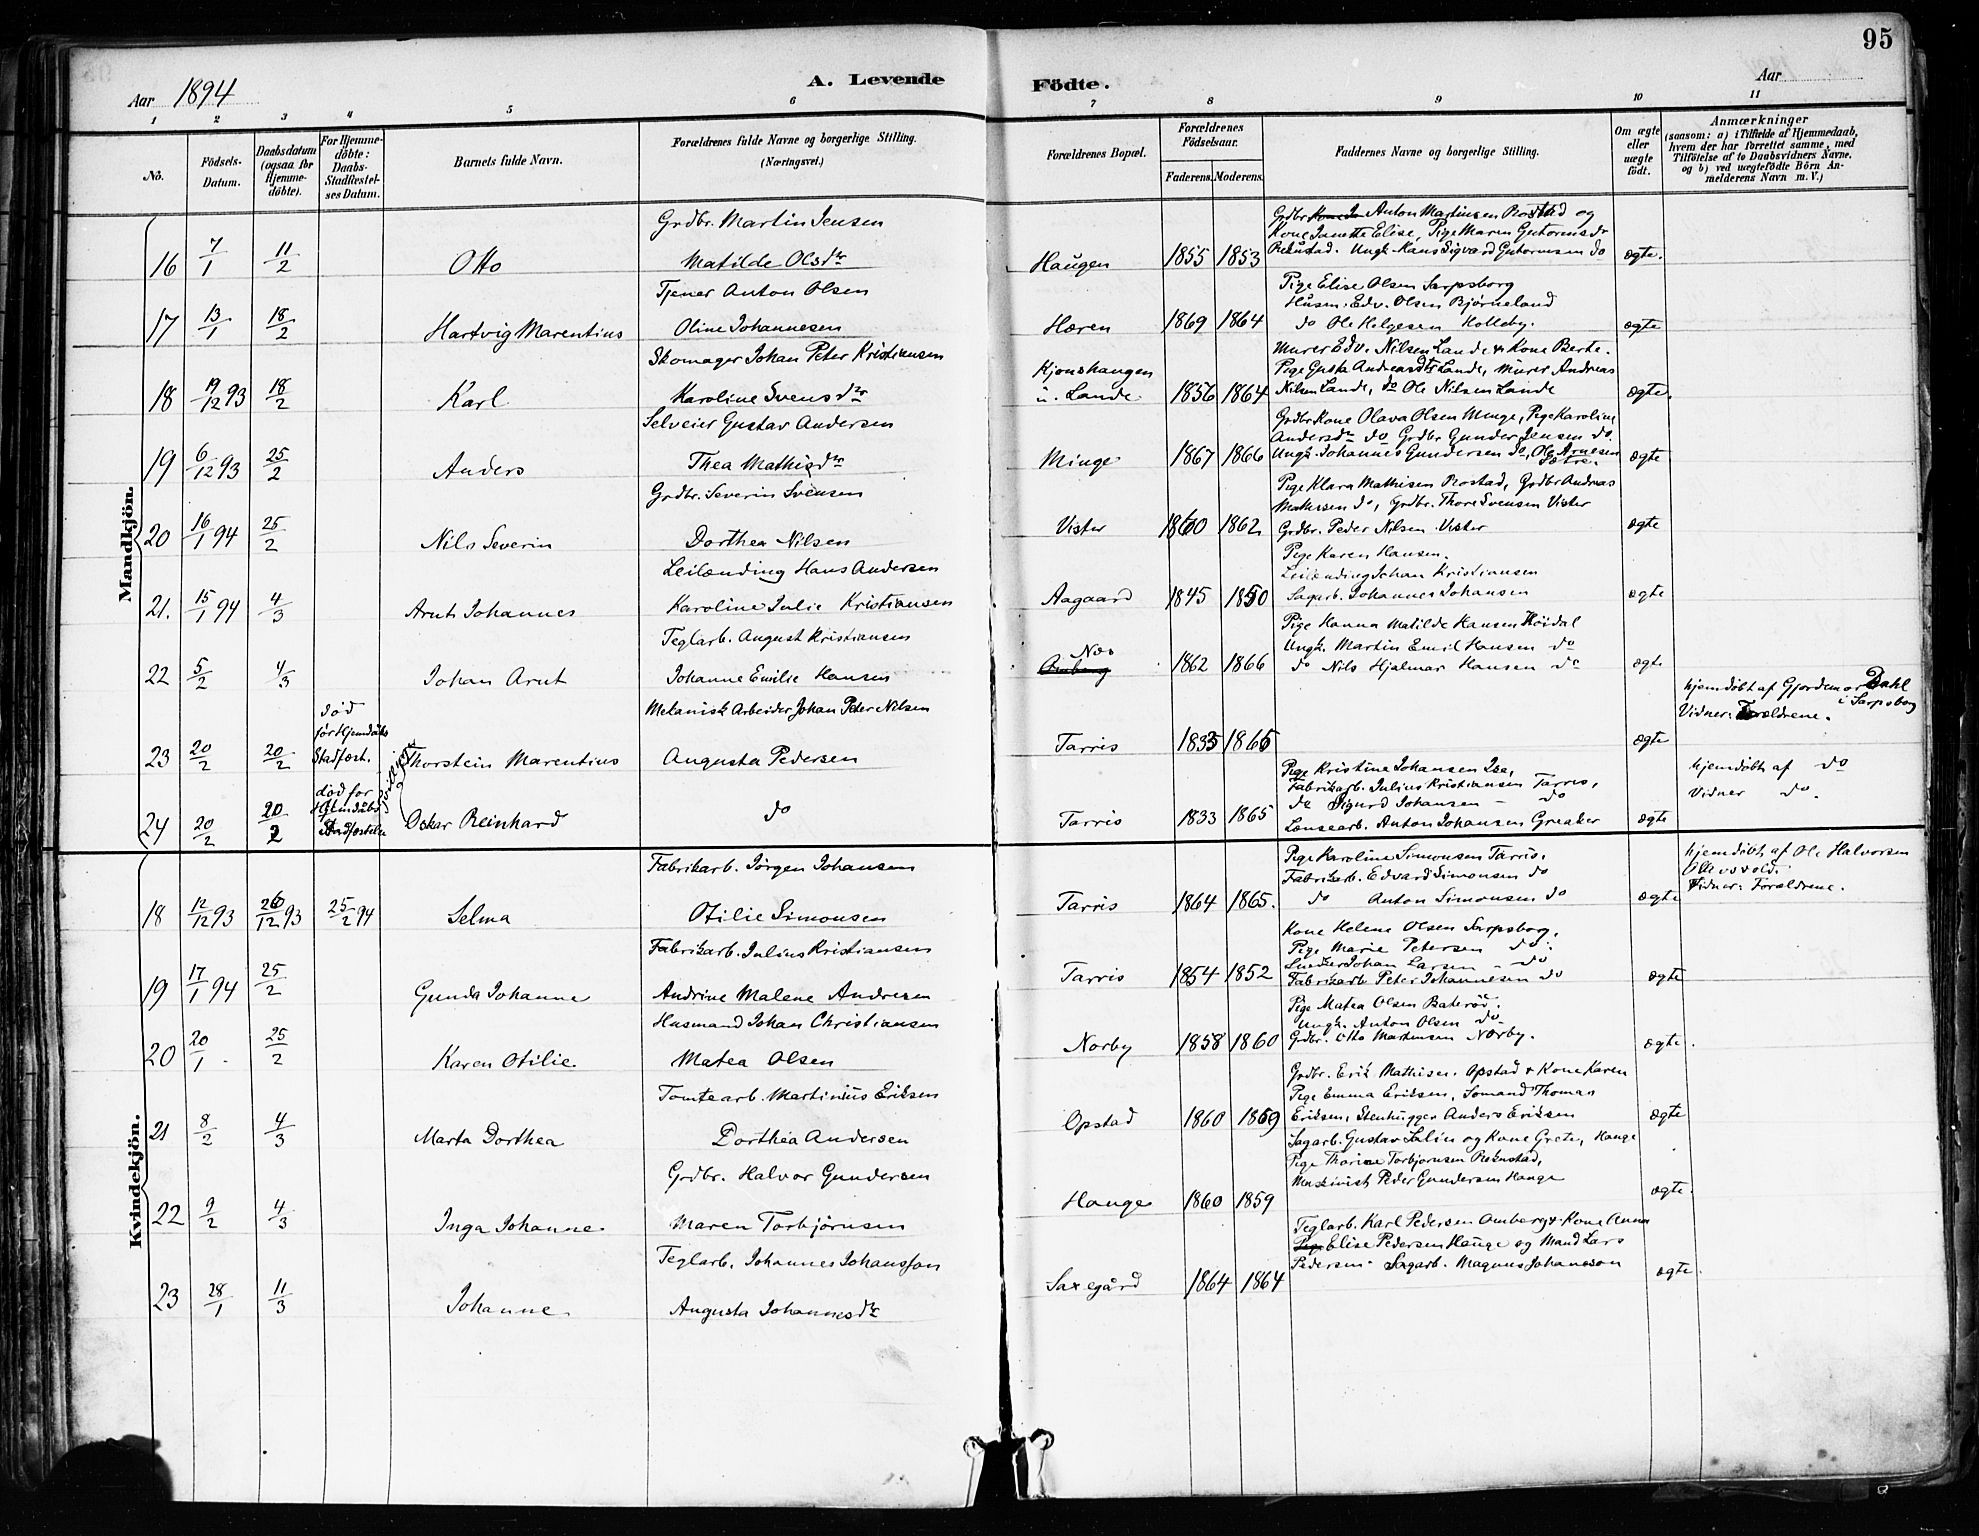 95
Aar 1894
A. Levende
Födte.
Aar
1 2 3 4 5 6 7 8 9 10 11
No.
Födsels-Datum.
Daabsdatum (ogsaa for Hjemme-döbte).
For Hjemme-döbte: Daabs-Stadfæstel-ses Datum.
Barnets fulde Navn.
Forældrenes fulde Navne og borgerlige Stilling.
(Næringsvei.)
Forældrenes Bopæl.
Forældrenes Födselsaar.
Faderens. Moderens.
Faddernes Navne og borgerlige Stilling.
Om ægte eller uægte födt.
Anmærkninger
(saasom: a) i Tilfælde af Hjemmedaab,
hvem der har forrettet samme, med
Tilföielse af to Daabsvidners Navne,
og b) ved uægtefödte Börn An-
melderens Navn m. V.)
Mandkjön.
Grdbr. Martin Jensen
Grdbr Anton Martinsen Rostad og
Kone Janette Elise, Pige Maren Gutormsdr
16 7/1 11/2 Otto Matilde Olsdr Haugen 1855 1853 Rekustad. Ungk. Hans Sigvard Gutormsen do ægte.
Tjener Anton Olsen
Pige Elise Olsen Sarpsborg
Husm. Edv. Olsen Bjørneland
17 13/1 18/2 Hartvig Marentius Oline Johannesen Hæren 1869 1864 do Ole Helgesen Holleby. ægte
Skomager Johan Peter Kristiansen
Murer Edv. Nilsen Lande & Kone Berte.
Kjonshaugen
Pige Gusta Andreasdtr Lande, Murer Andreas
18 19/12 93 18/2 Karl Karoline Svensdr u. Lande 1856 1864 Nilsen Lande, do Ole Nilsen Lande ægte.
Selveier Gustav Andersen
Grdbr Kone Olava Olsen Minge, Pige Karoline
Andersdr do Grdbr Gunder Jensen do.
19 6/12 93 25/2 Anders Thea Mathisdr Minge 1867 1866 Ungk. Johannes Gundersen do, Ole Arnesen Sætre. ægte
Grdbr. Severin Svensen
Pige Klara Mathisen Rostad, Grdbr Andreas
Mathisen do, Grdbr. Thore Svensen Vister
20 16/1 94 25/2 Nils Severin Dorthea Nilsen Vister 1860 1862 Grdbr. Peder Nilsen Vister ægte
Leilænding Hans Andersen
Pige Karen Hansen.
Leilænding Johan Kristiansen
21. 15/1 94 4/3 Arnt Johannes Karoline Julie Kristiansen Aagaard 1845 1850 Sagarb. Johannes Johansen ægte
Teglarb. August Kristiansen
Pige Hanna Matilde Hansen Høidal
Ungk. Martin Emil Hansen do
22 5/2 4/3 Johan Arnt Johanne Emilie Hansen Næs 1862 1866 do Nils Hjalmar Hansen do ægte
død før Hjemdåbs Stadfæst.
Mekanisk Arbeider Johan Peter Nilsen
hjemdøbt af Gjordemor Dahl i Sarpsborg
Vidner: Forældrene.
23 20/2 20/2 Thorstein Marentius Augusta Pedersen Tarris 1833 1865 ægte
død for Hjemdåbs Stadfæstelse
Tvillinger
Pige Kristine Johansen Ise,
Fabrikarb. Julius Kristiansen Tarris,
do Sigurd Johansen - do
24 20/2 20/2 Oskar Reinhard do Tarris 1833 1865 Lænsearb. Anton Johansen Greaker ægte
hjemdøbt af do
Vidner do.
Kvindekjön.
Fabrikarb. Jørgen Johansen
Pige Karoline Simonsen Tarris.
Fabrikarb. Edvard Simonsen do
hjemdøbt af Ole Halvorsen
Vidner: Forældrene.
18 12/12 93 26/12 93 25/2 94 Selma Otilie Simonsen Tarris 1864 1865. do Anton Simonsen do ægte
Fabrikarb. Julius Kristiansen
Kone Helene Olsen Sarpsborg.
Pige Marie Petersen do.
Snedker Johan Larsen - do
19 17/1 94 25/2 Gunda Johanne Andrine Malene Andresen Tarris 1854 1852 Fabrikarb Peter Johannesen do ægte
Husmand Johan Christiansen
Pige Matea Olsen Baterød.
Ungk. Anton Olsen do
20 20/1 25/2 Karen Otilie Matea Olsen Norby 1858 1860 Grdbr. Otto Martinsen Norby. ægte.
Tomtearb. Martinius Eriksen
Grdbr. Erik Mathisen Opstad & Kone Karen
Pige Emma Eriksen, Somand Thomas
21 8/2 4/3 Marta Dorthea Dorthea Andersen Opstad 1860 1869 Eriksen, Stenhugger Anders Eriksen ægte
Grdbr. Halvor Gundersen
Sagarb. Gustav Salin og Kone Grete, Hauge
Pige Thorine Torbjørnsen Rekustad,
Maskinist Peder Gundersen Hauge
22 9/2 4/3 Inga Johanne Maren Torbjørnsen Hauge 1860 1859 ægte.
Teglarb. Johannes Johansson
Teglarb. Karl Pedersen Omberg & Kone Anna
Elise Pedersen Hauge og Mand Lars
Pedersen Sagarb. Magnus Johansson
23 28/1 11/3 Johanne Augusta Johannesdr Saxegård 1864 1864 ægte.